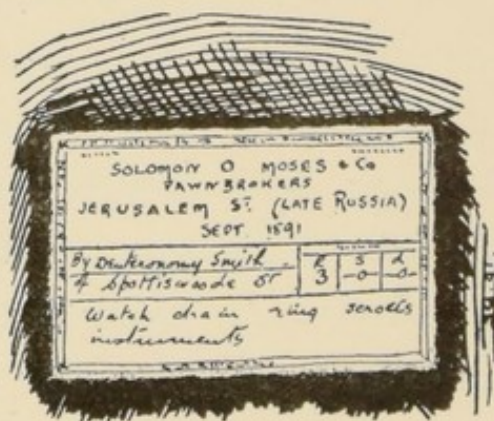 SOLOMON O MOSES & Co
PAWNBROKERS
JERUSALEM ST. (LATE RUSSIA)
SEPT. 1891
By Deuteronomy Smith £ S d
4 Spottiswoode St 3 -0- -0-
Watch chain ring scrolls
instruments